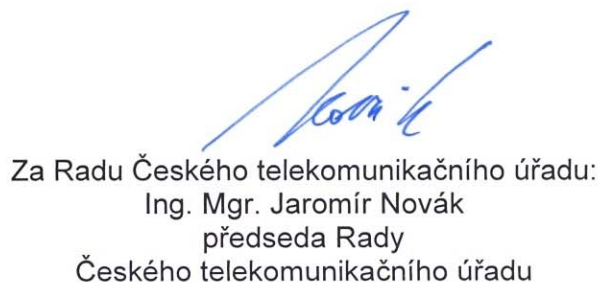 Za Radu Českého telekomunikačního úřadu:
Ing. Mgr. Jaromír Novák
předseda Rady
Českého telekomunikačního úřadu